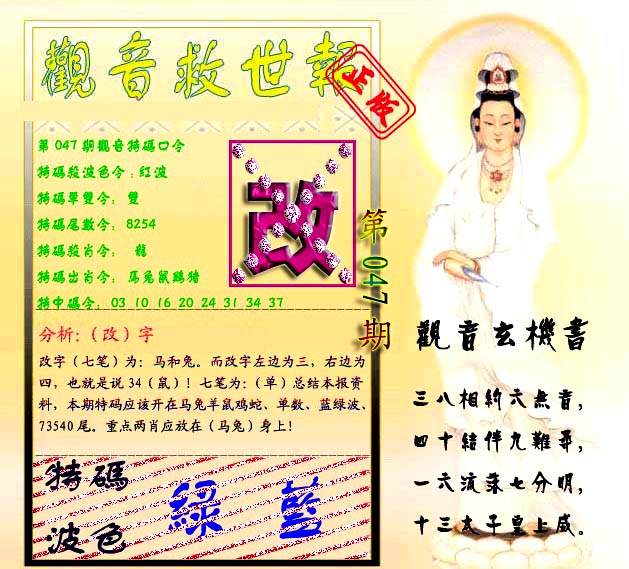 觀音救世報
正版
第047期觀音特碼口令
特碼殺波色令:紅波
特碼單雙令: 雙
特碼尾數令: 8254
特碼殺肖令: 龍
特碼出肖令: 馬兔鼠鷄猪
特中碼令: 03 10 16 20 24 31 34 37
改
第047期
分析:（改）字
改字（七笔）为：马和兔。而改字左边为三，右边为
四，也就是说34（鼠）！七笔为：（单）总结本报资
料，本期特码应该开在马兔羊鼠鸡蛇、单数、蓝绿波、
73540尾。重点两肖应放在（马兔）身上！
特碼
波色
綠 藍
觀音玄機書
三八相約六無音,
四十結伴九難尋,
一六流落七分明,
十三太子皇上威。